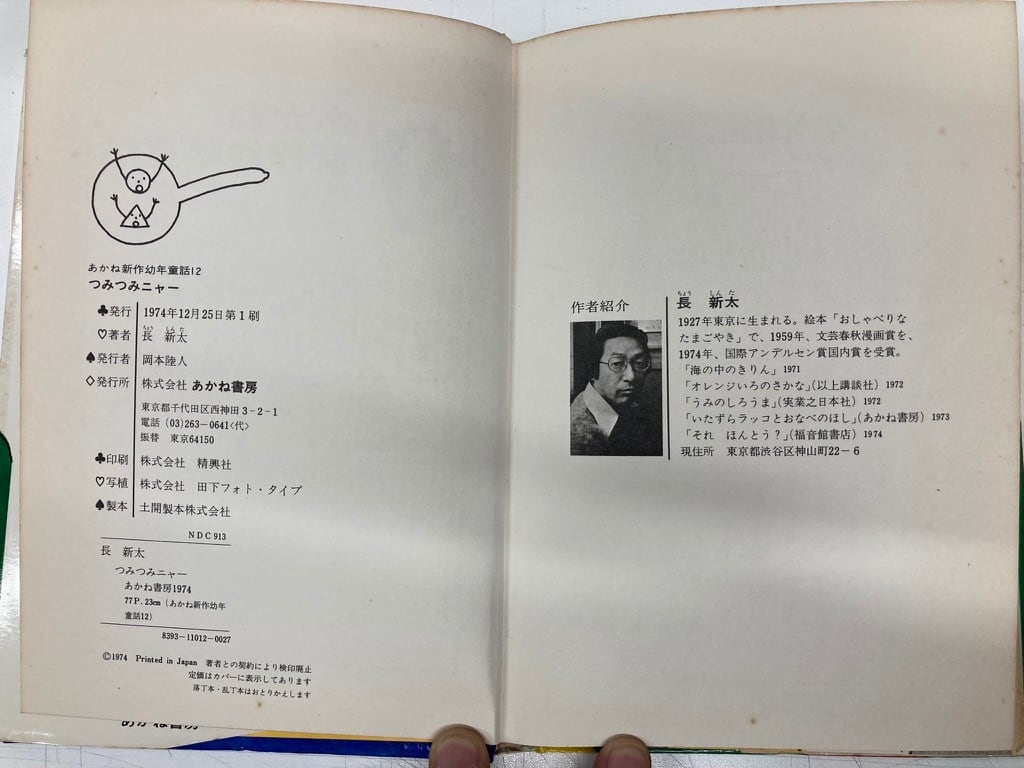 あかね新作幼年童話12
つみつみニャー
♣発行 1974年12月25日第1刷
ちょう しんた
♡著者 長 新太
♠発行者 岡本陸人
♢発行所 株式会社 あかね書房
東京都千代田区西神田3-2-1
電話 (03)263-0641〈代〉
振替 東京64150
♣印刷 株式会社 精興社
♡写植 株式会社 田下フォト・タイプ
♠製本 土開製本株式会社
NDC 913
長 新太
つみつみニャー
あかね書房1974
77P. 23cm (あかね新作幼年
童話12)
8393-11012-0027
©1974 Printed in Japan 著者との契約により検印廃止
定価はカバーに表示してあります
落丁本・乱丁本はおとりかえします
あかね書房
作者紹介
ちょう しん た
長 新太
1927年東京に生まれる。絵本「おしゃべりな
たまごやき」で、1959年、文芸春秋漫画賞を、
1974年、国際アンデルセン賞国内賞を受賞。
「海の中のきりん」1971
「オレンジいろのさかな」(以上講談社) 1972
「うみのしろうま」(実業之日本社) 1972
「いたずらラッコとおなべのほし」(あかね書房) 1973
「それ ほんとう?」(福音館書店) 1974
現住所 東京都渋谷区神山町22-6